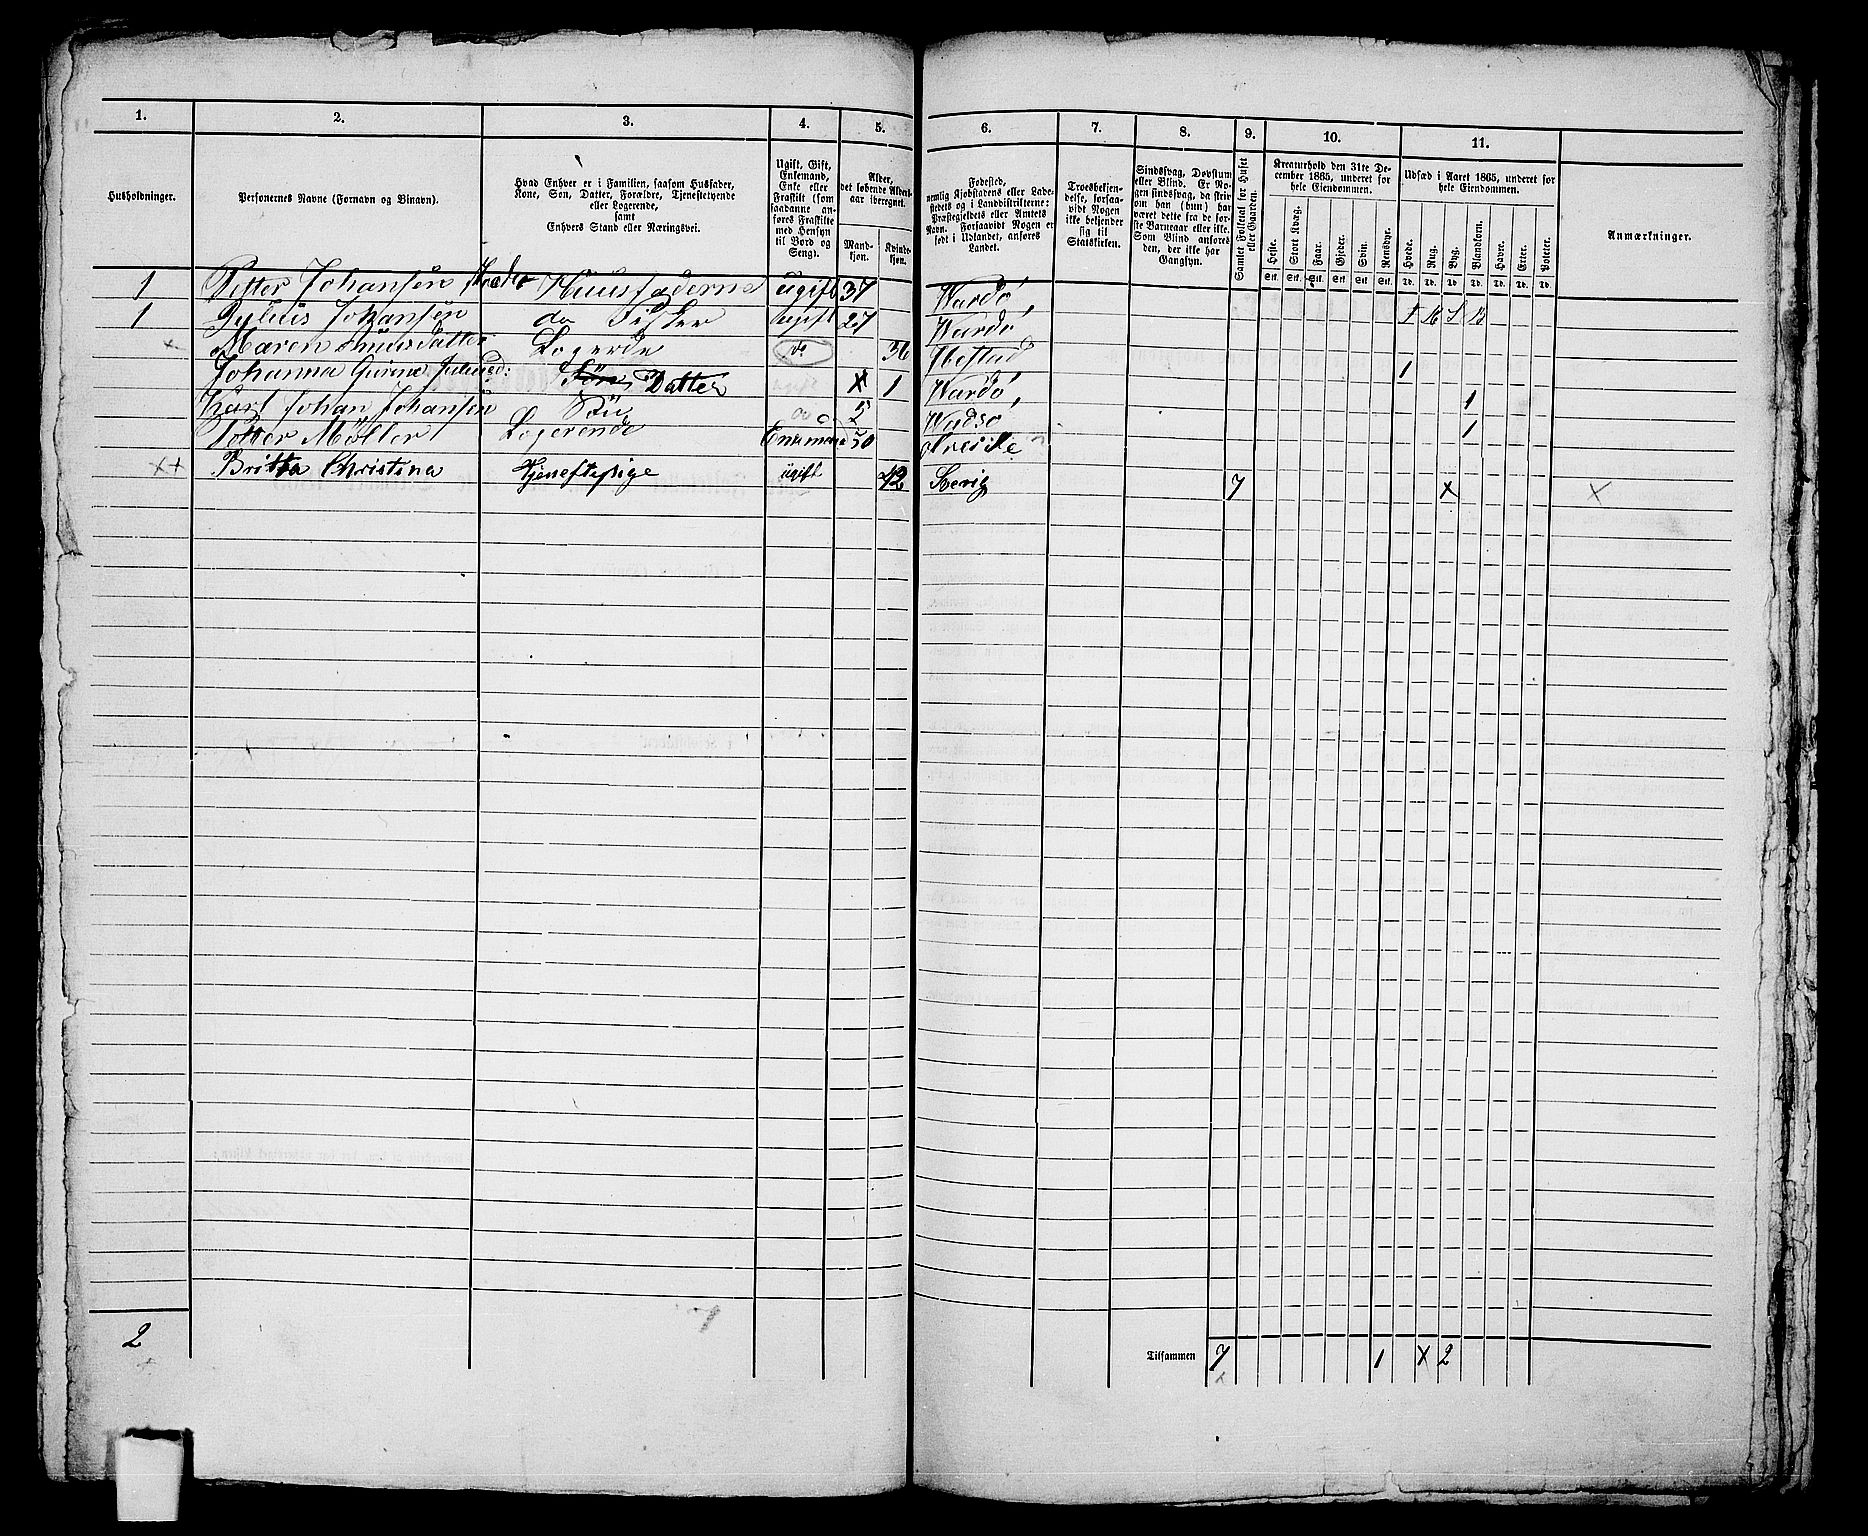 1. 2. 3. 4. 5. 6. 7. 8. 9. 10. 11.
Husholdninger.
Personernes Navne (Fornavn og Binavn).
Hvad Enhver er i Familien, saasom Husfader,
Kone, Søn, Datter, Forældre, Tjenestetyende
eller Logerende,
samt
Enhvers Stand eller Næringsvei.
Ugift, Gift,
Enkemand,
Enke eller
Fraskilt (som
saadanne an-
føres Fraskilte
med Hensyn
til Bord og
Seng).
Alder,
det løbende Alders-
aar iberegnet.
Mand-
kjøn.
Kvinde-
kjøn.
Fødested,
nemlig Kjøbstadens eller Lade-
stedets og i Landdistrikterne:
Præstegjeldets eller Amtets
Navn. Forsaavidt Nogen er
født i Udlandet, anføres
Landet.
Troesbekjen-
delse, forsaa-
vidt Nogen
ikke bekjender
sig til
Statskirken.
Sindssvag, Døvstum
eller Blind. Er No-
gen sindssvag, da skriv
om han (hun) har
været dette fra de før-
ste Barneaar eller ikke.
Som Blind anføres
den, der ikke har
Gangsyn.
Samlet Folketal for Huset
eller Gaarden.
Kreaturhold den 31te De-
cember 1865, underet for
hele Eiendommen.
Heste. Stort Kvæg. Faar. Gjeder. Svin. Rensdyr.
Stk. Stk. Stk. Stk. Stk. Stk.
Udsæd i Aaret 1865, underet for
hele Eiendommen.
Hvede. Rug. Byg. Blandkorn. Havre. Erter. Poteter.
Td. Td. Td. Td. Td. Td. Td.
Anmærkninger.
1 Petter Johansen Huusfaderne ugift 37 Wardø
1 Julius Johansen do Fisker ugift 27 Wardø
Maren Logerde do 36 Ibestad 1
Johanna Søn Datter 1 Wardø 1
Karl Johan Johansen Sön do 5 Wadsø 1
Petter Möller Logerende Enkemand 50
Britta Christina Tjenestepige ugift 42 Sverig 7 x x
2
Tilsammen 7 1 x 2